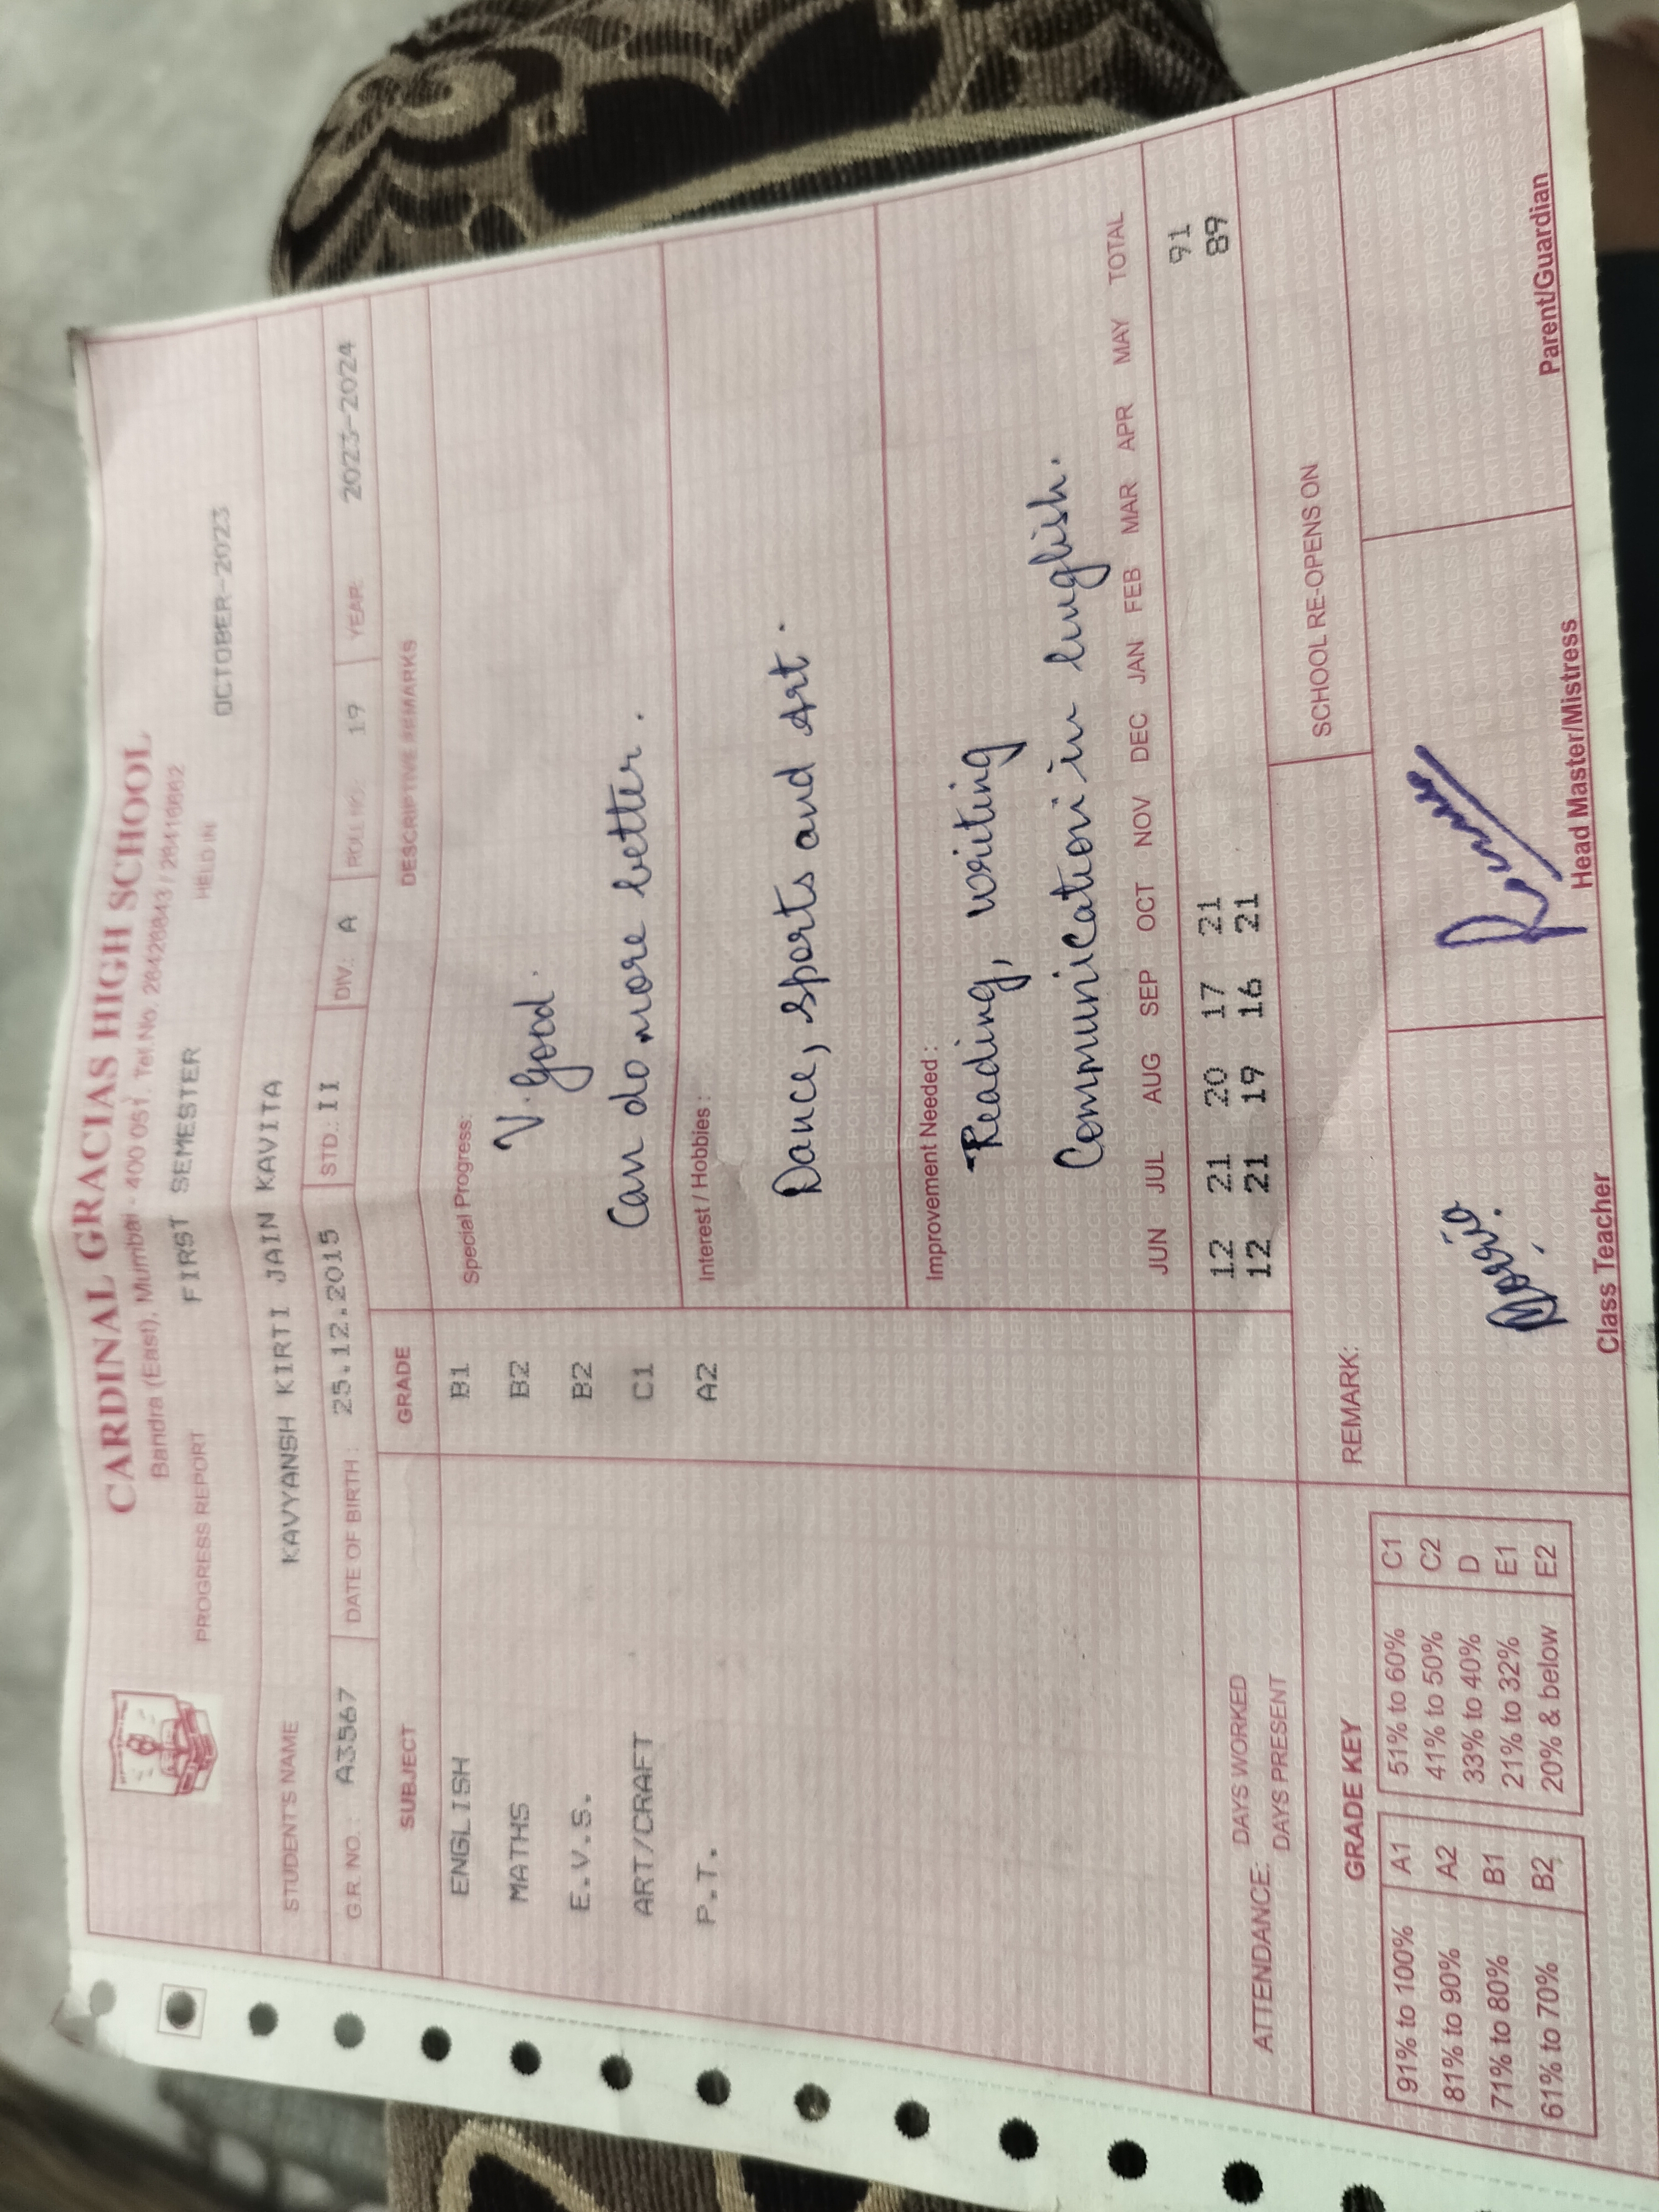 CARDINAL GRACIAS HIGH SCHOOL
Bandra (East), Mumbai - 400 051. Tel No. 26428843 /
PROGRESS REPORT FIRST SEMESTER HELD IN OCTOBER-2023
STUDENT'S NAME KAVYANSH KIRTI JAIN KAVITA
G.R. NO.: A3567 DATE OF BIRTH: 25.12.2015 STD.: II DIV.: A ROLL NO. 19 YEAR: 2023-2024
SUBJECT GRADE DESCRIPTIVE REMARKS
ENGLISH B1
MATHS B2
E.V.S. B2
ART/CRAFT C1
P.T. A2
Special Progress:
V. Good.
Can do more better.
Interest / Hobbies :
Dance, Sports and Art.
Improvement Needed :
Reading, writing
Communication in English.
JUN JUL AUG SEP OCT NOV DEC JAN FEB MAR APR MAY TOTAL
ATTENDANCE: DAYS WORKED 12 21 20 17 21 91
DAYS PRESENT 12 21 19 16 21 89
GRADE KEY
91% to 100% A1 51% to 60% C1
81% to 90% A2 41% to 50% C2
71% to 80% B1 33% to 40% D
61% to 70% B2 21% to 32% E1
20% & below E2
REMARK:
SCHOOL RE-OPENS ON
Class Teacher Head Master/Mistress Parent/Guardian